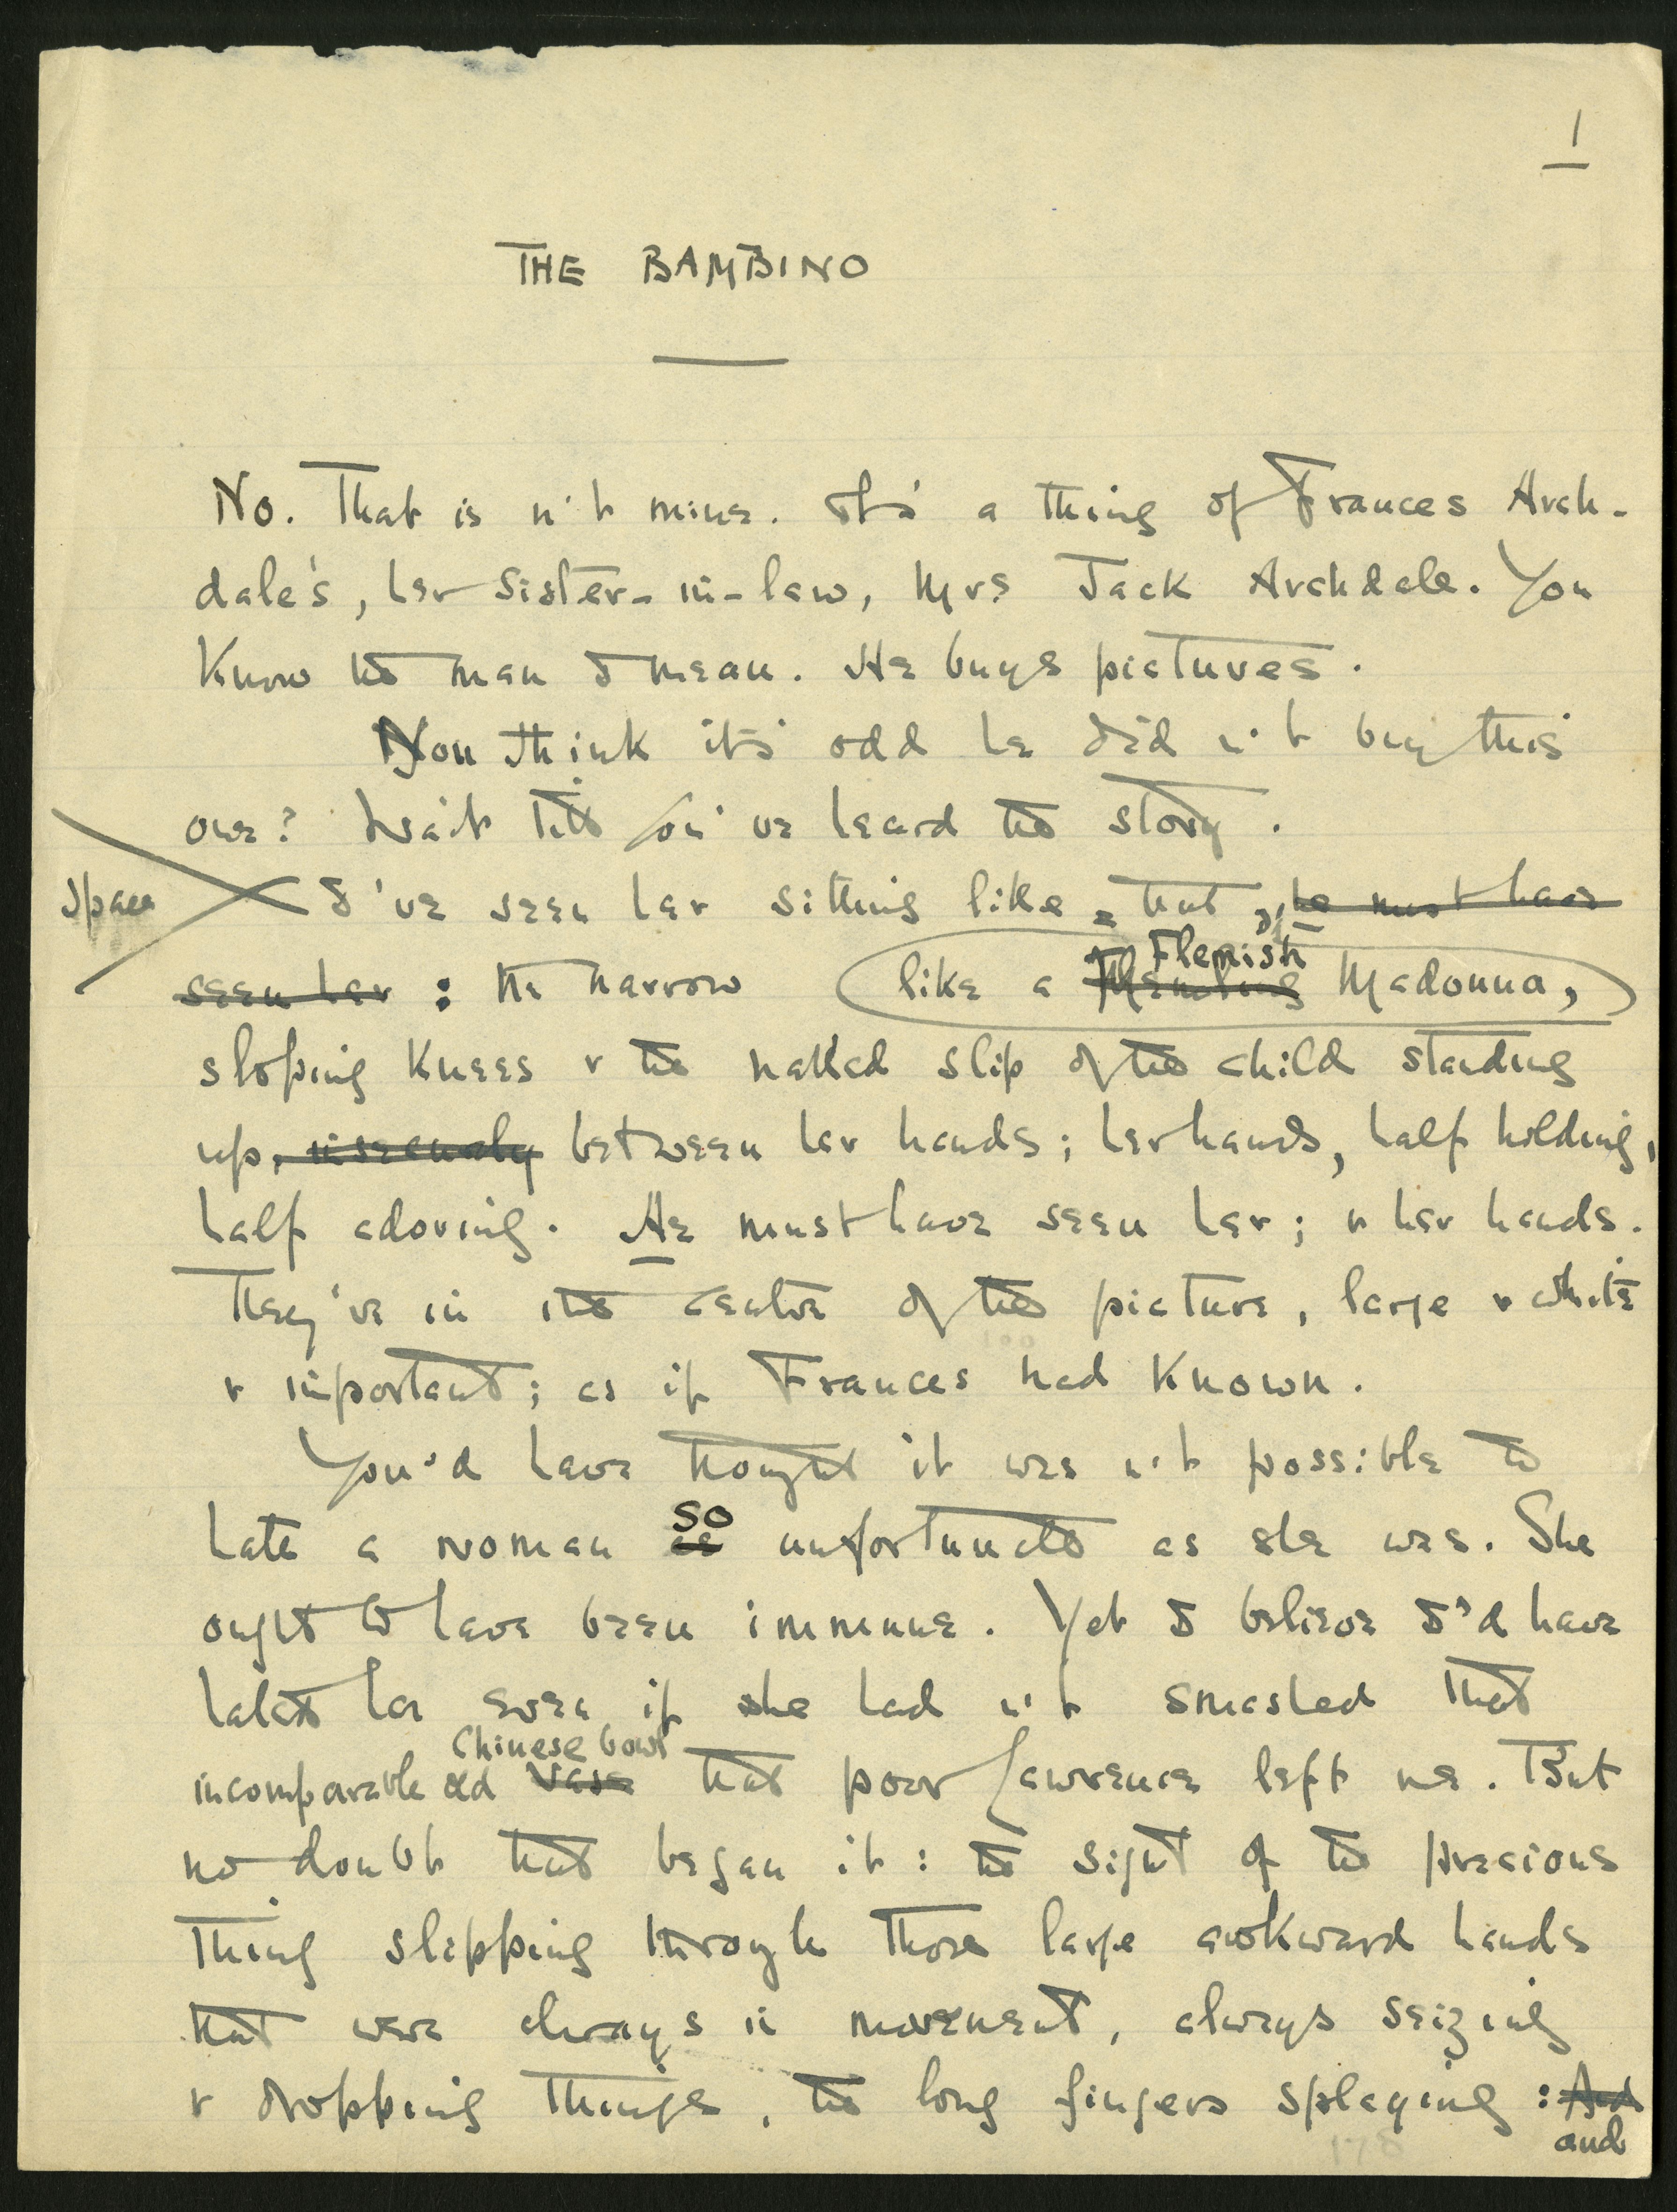 1
THE BAMBINO
No. That is n't mine. It's a thing of Frances Arch-
dale's, her sister-in-law, Mrs Jack Archdale. You
know the man I mean. He buys pictures.
You think it's odd he did n't buy this
one? Wait till you've heard the story.
Space
I've seen her sitting like that, he must have
seen her : the narrow like a Flemish Memling Madonna,
sloping knees & the naked slip of the child standing
up, between her hands; her hands, half holding,
half adoring. He must have seen her; & her hands.
They're in the centre of the picture, large & white
& important; as if Frances had known.
You'd have thought it was n't possible to
hate a woman as so unfortunate as she was. She
ought to have been immune. Yet I believe I'd have
hated her even if she had n't smashed that
incomparable old vase Chinese bowl that poor Lawrence left me. But
no doubt that began it: the sight of the precious
thing slipping through those large awkward hands
that were always in movement, always seizing
& dropping things, the long fingers splaying : And
and